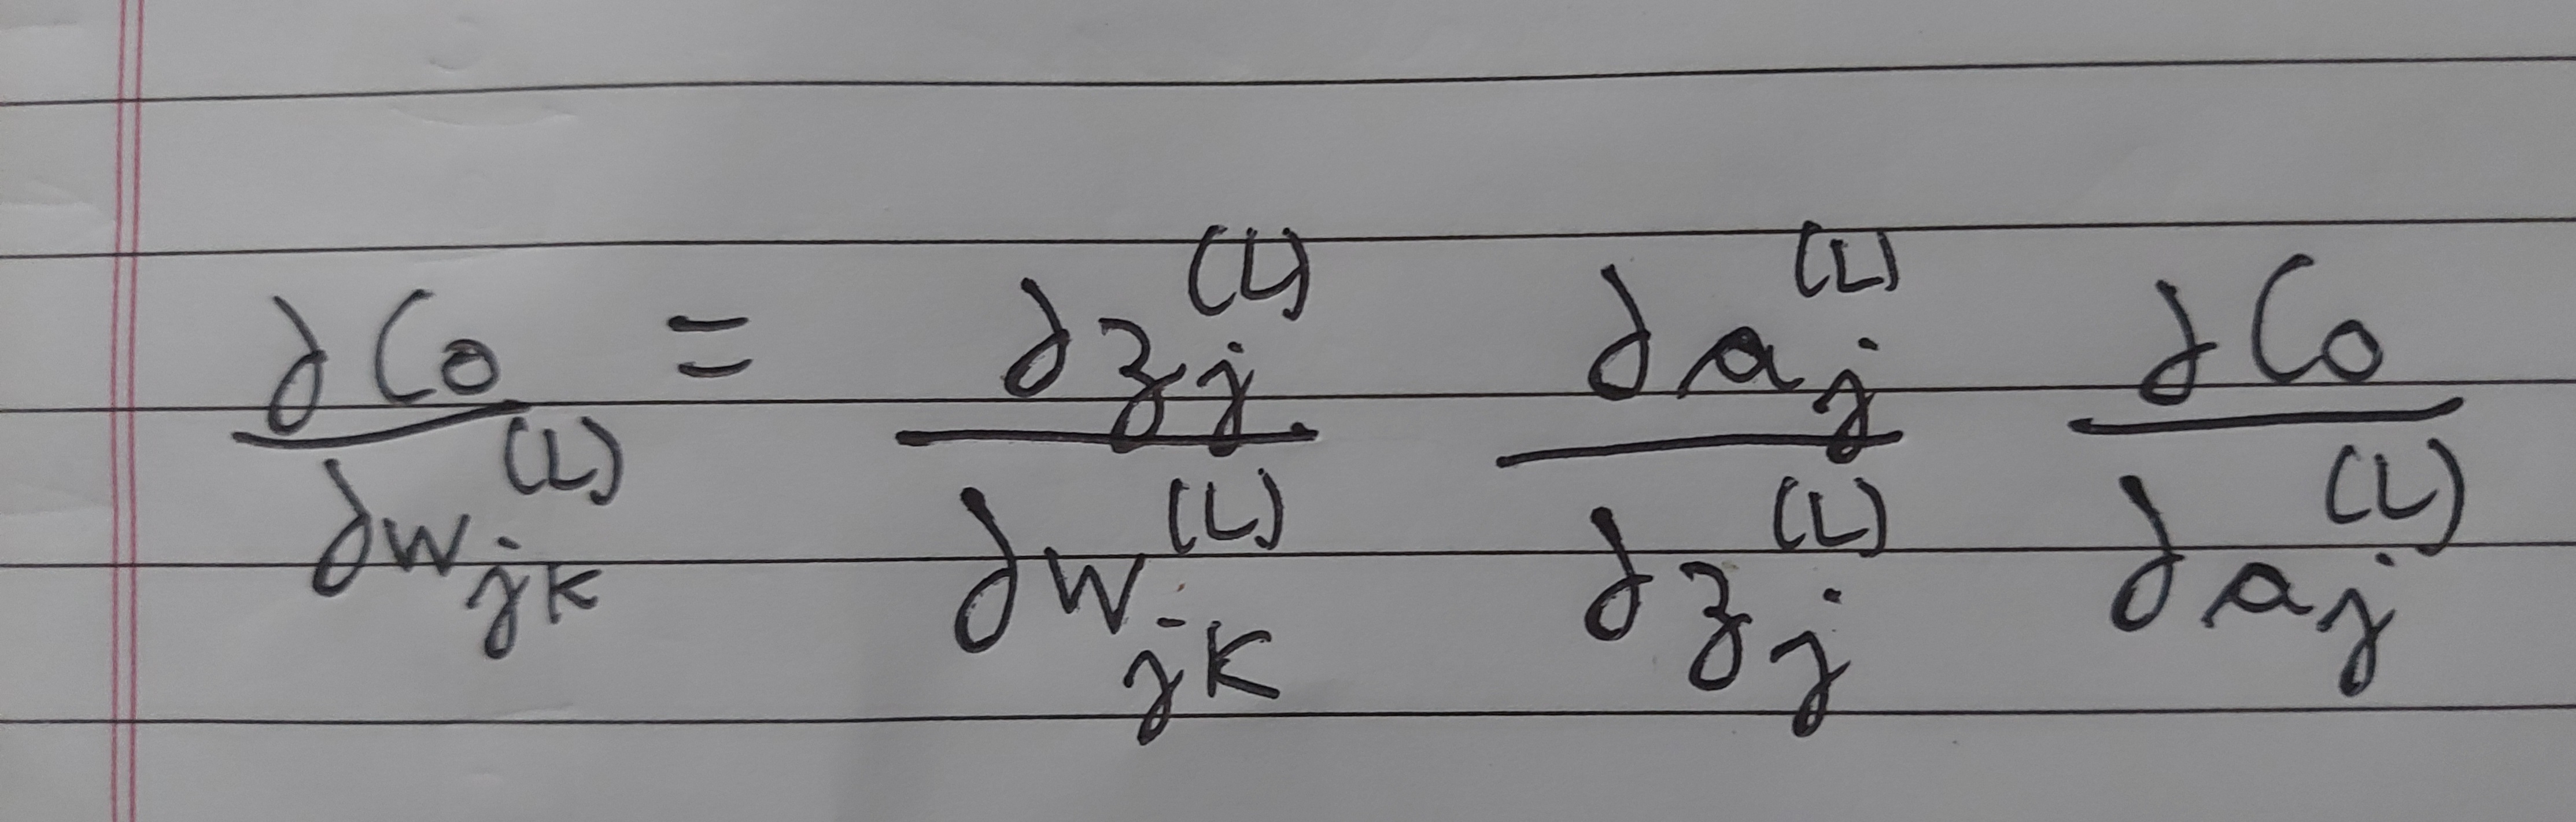 ∂C₀/∂w_{jk}^{(L)} = ∂z_j^{(L)}/∂w_{jk}^{(L)} ∂a_j^{(L)}/∂z_j^{(L)} ∂C₀/∂a_j^{(L)}